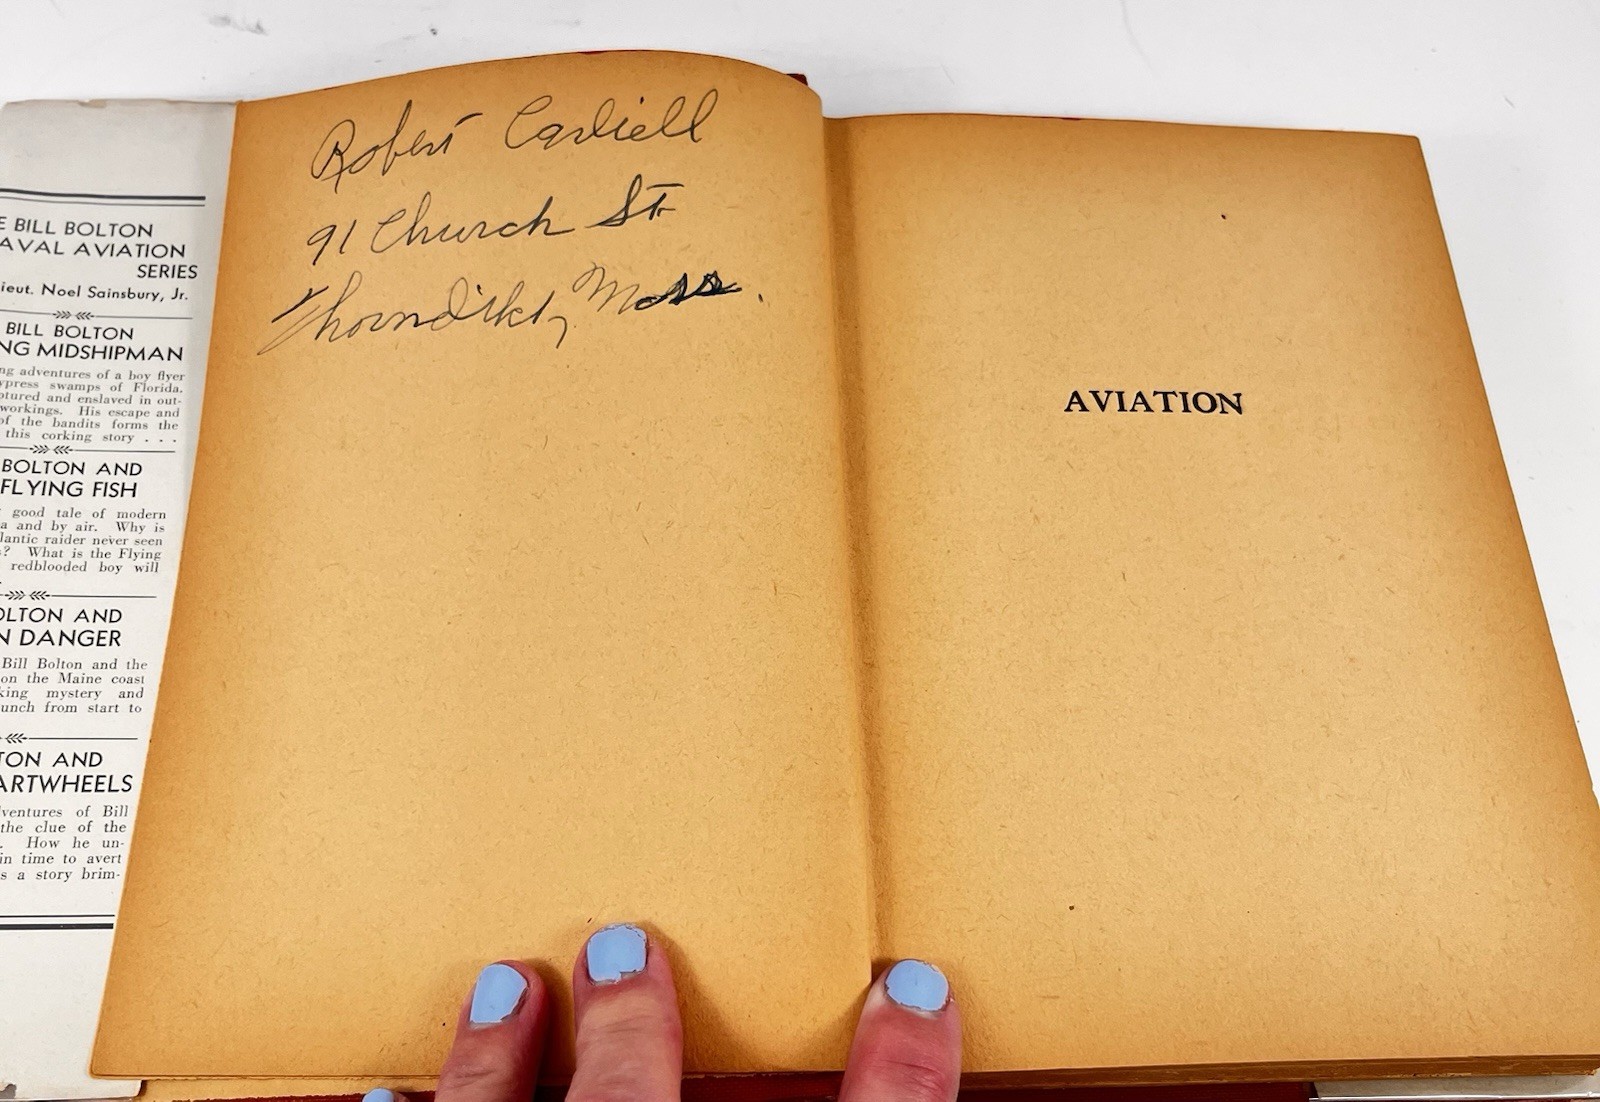 Robert Carliell
91 Church St.
Thorndike, Mass.
AVIATION
E BILL BOLTON
AVAL AVIATION
SERIES
ieut. Noel Sainsbury, Jr.
BILL BOLTON
NG MIDSHIPMAN
ng adventures of a boy flyer
ypress swamps of Florida.
ptured and enslaved in out-
workings. His escape and
of the bandits forms the
this corking story . . .
BOLTON AND
FLYING FISH
good tale of modern
a and by air. Why is
lantic raider never seen
? What is the Flying
redblooded boy will
OLTON AND
N DANGER
Bill Bolton and the
on the Maine coast
king mystery and
unch from start to
TON AND
ARTWHEELS
ventures of Bill
the clue of the
. How he un-
in time to avert
s a story brim-